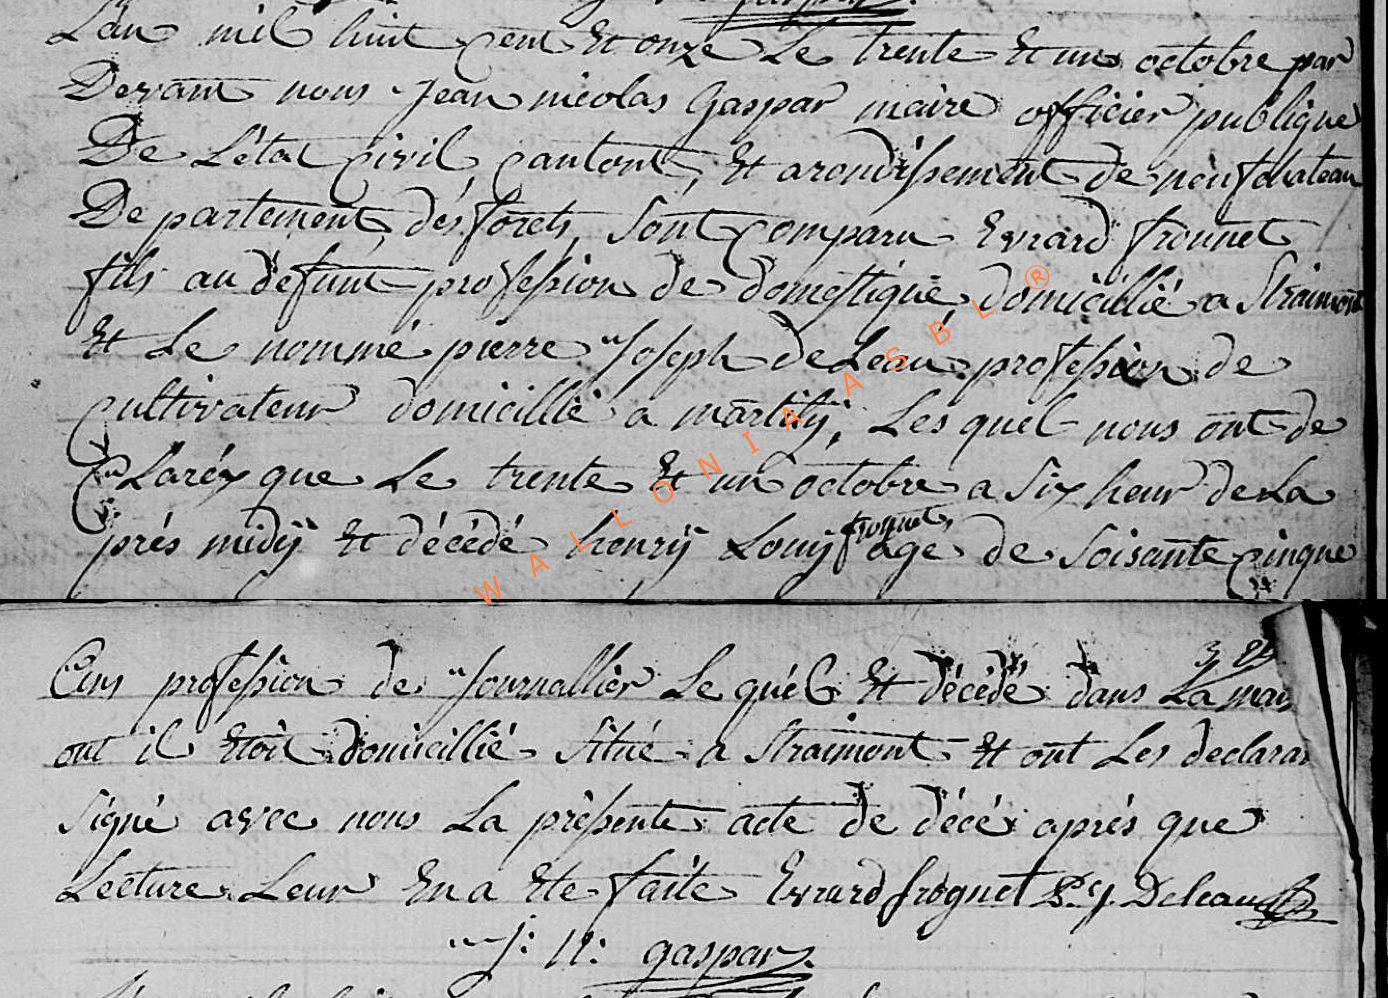 L'an mil huit cent Et onze Le trente Et un octobre par
Devant nous Jean nicolas Gaspar maire officier publique
De L'état civil, cantont, Et arondissement de neufchateau
De partement dés forets, sont comparu Evrard fronnet
fils au défunt profession de domestique domicillié a Straimont
Et Le nommé pierre Joseph deLeau profession de
cultivateur domicillié a martilÿ, Les quel nous ont de
claréz que Le trente Et un octobre a six heur de La
prés midÿ Et décédé henrÿ Louÿ frognet, agé de soisante cinque
Ens profession de Journallier Le quél Et décédé dans La mais
out il Etoit domicillié situé a Straimont Et ont Les declaran
signé avec nous La présente acte de décé aprés que
Lecture Leur En a Ete faite Evrard frognet P. J. Deleau
J: N: gaspar
WALLONIA ASBL ®